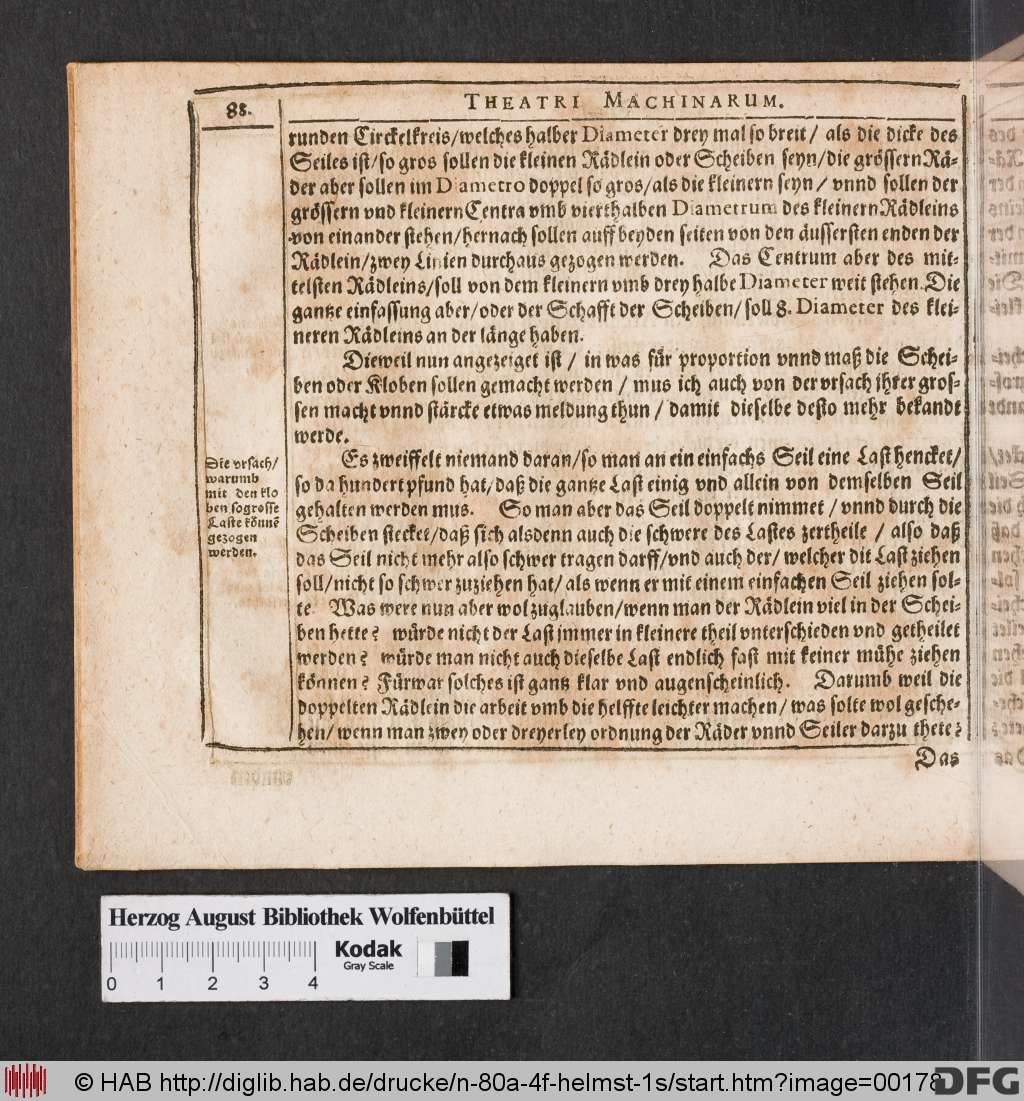 88.
THEATRI MACHINARUM.
runden Circkelkreis/welches halber Diameter drey mal so breit/ als die dicke des
Seiles ist/so gros sollen die kleinen Rädlein oder Scheiben seyn/die grössern Rä-
der aber sollen im Diametro doppel so gros/als die kleinern seyn/ vnnd sollen der
grössern vnd kleinern Centra vmb vierthalben Diametrum des kleinern Rädleins
von einander stehen/hernach sollen auff beyden seiten von den äussersten enden der
Rädlein/zwey Linien durchaus gezogen werden. Das Centrum aber des mit-
telsten Rädleins/soll von dem kleinern vmb drey halbe Diameter weit stehen. Die
gantze einfassung aber/oder der Schafft der Scheiben/soll 8. Diameter des klei-
neren Rädleins an der länge haben.
Dieweil nun angezeiget ist/ in was für proportion vnnd maß die Schei-
ben oder Kloben sollen gemacht werden/ mus ich auch von der vrsach jhrer gros-
sen macht vnnd stärcke etwas meldung thun/ damit dieselbe desto mehr bekandt
werde.
Die vrsach/
warumb
mit den klo
ben so grosse
Laste könnē
gezogen
werden.
Es zweiffelt niemand daran/so man an ein einfachs Seil eine Last hencket/
so da hundert pfund hat/daß die gantze Last einig vnd allein von demselben Seil
gehalten werden mus. So man aber das Seil doppelt nimmet/ vnnd durch die
Scheiben stecket/daß sich alsdenn auch die schwere des Lastes zertheile/ also daß
das Seil nicht mehr also schwer tragen darff/vnd auch der/ welcher dit Last ziehen
soll/nicht so schwer zuziehen hat/als wenn er mit einem einfachen Seil ziehen sol-
te. Was were nun aber wol zuglauben/wenn man der Rädlein viel in der Schei-
ben hette? würde nicht der Last jmmer in kleinere theil vnterschieden vnd getheilet
werden? würde man nicht auch dieselbe Last endlich fast mit keiner mühe ziehen
können? Fürwar solches ist gantz klar vnd augenscheinlich. Darumb weil die
doppelten Rädlein die arbeit vmb die helffte leichter machen/ was solte wol gesche-
hen/ wenn man zwey oder dreyerley ordnung der Räder vnnd Seiler darzu thete?
Das
Herzog August Bibliothek Wolfenbüttel
Kodak
Gray Scale
0 1 2 3 4
© HAB http://diglib.hab.de/drucke/n-80a-4f-helmst-1s/start.htm?image=00178
DFG